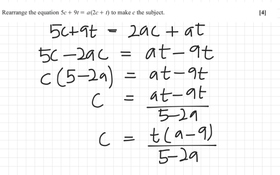 Rearrange the equation 5c + 9t = a(2c + t) to make c the subject. [4]
5c+9t = 2ac + at
5c - 2ac = at - 9t
c(5-2a) = at - 9t
c = at - 9t / 5-2a
c = t(a-9) / 5-2a